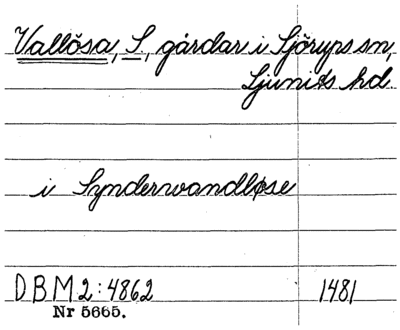 Vallösa, S, gårdar i Sjörups sn,
Ljunits hd.
i Synderwandløse
DBM 2:4862 1481
Nr 5665.